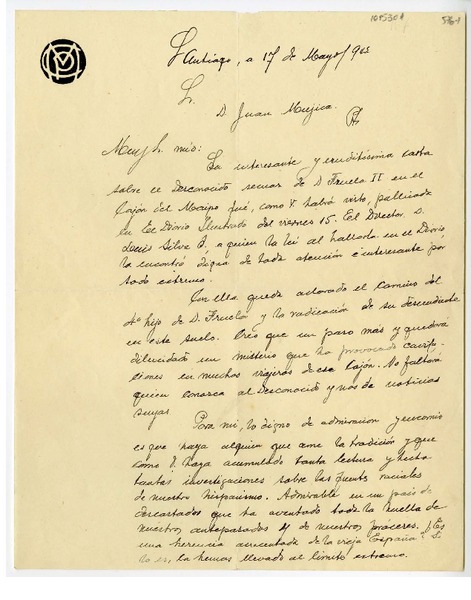 1015301
Santiago, a 17 de Mayo/ 925
Sr.
D. Juan Mujica.
Muy Sr. mío:
La interesante y eruditísima carta
sobre el Desconocido secuar de D. Fruela II en el
Cajón del Maipo fué, como V habrá visto, publicada
en El Diario Ilustrado del viernes 15. El Director, D.
Luis Silva a quien la leí al hallarla en el Diario
la encontró digna de toda atención é interesante por
todo extremo.
Con ella queda aclarado el camino del
hijo de D. Fruela y la radicación de su descendiente
en este suelo. Creo que un paso más y quedará
dilucidado un misterio que ha provocado
en muchos viajeros de ese Cajón. No faltará
quien conozca al Desconocido y nos dé noticias
suyas.
Para mi, lo digno de admiración y encomio
es que haya alguien que ame la tradición y que
como V. haya acumulado tanta lectura y hecho
tantas investigaciones sobre las fuentes raciales
de nuestro hispanismo. Admirable en un país de
descastados que ha aventado toda la huella de
nuestros antepasados y de nuestros próceres. ¿Es
una herencia aumentada de la vieja España? Si
lo es, la hemos llevado al límite extremo.